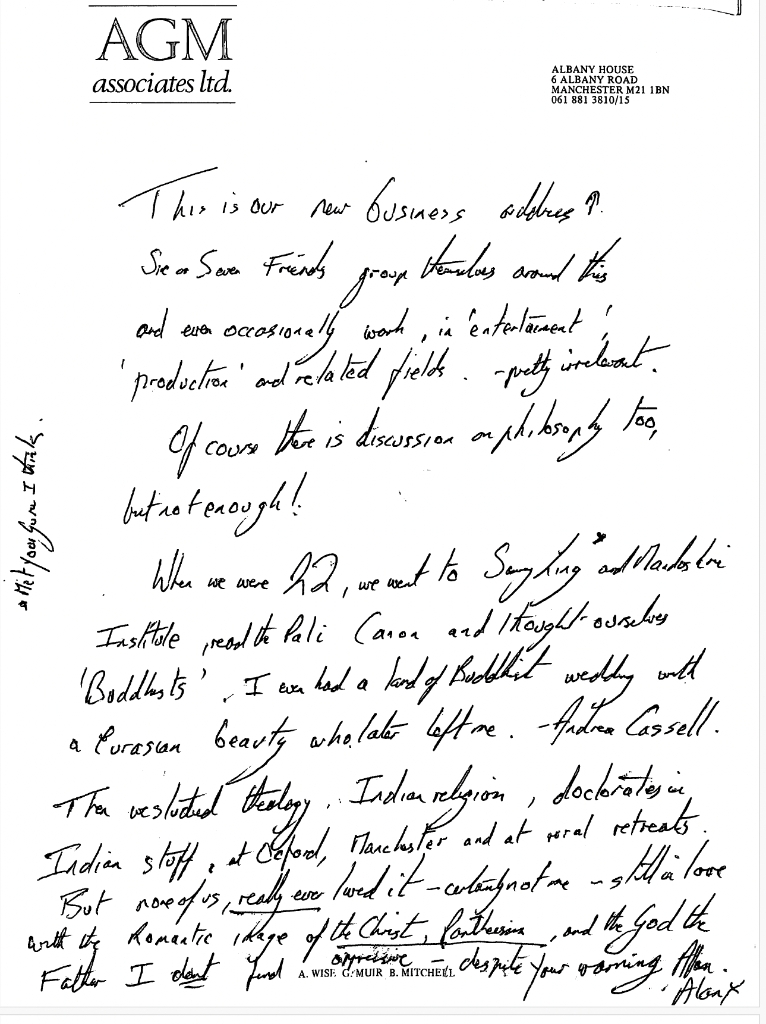 AGM
associates ltd.
ALBANY HOUSE
6 ALBANY ROAD
MANCHESTER M21 1BN
061 881 3810/15
This is our new business address ↑.
Six or Seven Friends group themselves around this
and even occasionally work, in 'entertaiment',
'production' and related fields. - pretty irrelevant.
Of course there is discussion on philosophy too,
but not enough!
When we were 22, we went to Samy Ling* and
Institute, read the Pali Canon and thought ourselves
'Boddhists'. I even had a kind of Buddhist wedding with
a Eurasian beauty who later left me. - Andrea Cassell.
Then we studied theology, Indian religion, doctorates in
Indian stuff, at Oxford, Manchester and at rural retreats.
But none of us, really ever lived it - certainly not me - still in love
with the Romantic image of the Christ, Pantheism, and the God the
Father I dont find oppressive - despite your warning Allan.
Alan x
* Met your Guru I think.
A. WISE G. MUIR B. MITCHELL